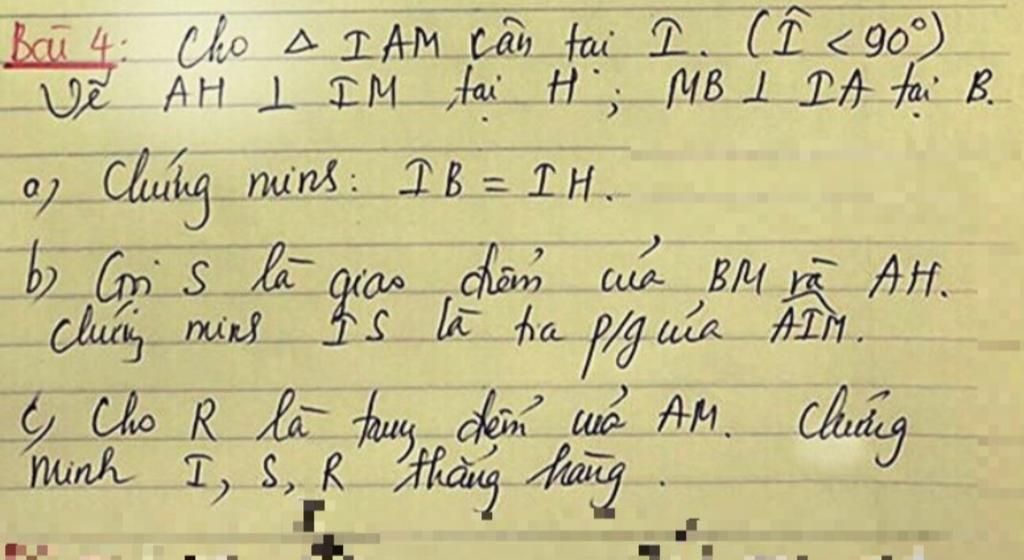 Bài 4: Cho △ IAM cân tại I. (Î < 90°)
Vẽ AH ⊥ IM tại H; MB ⊥ IA tại B.
a) Chứng minh: IB = IH.
b) Gọi S là giao điểm của BM và AH.
Chứng minh IS là tia p/g của AÎM.
c) Cho R là trung điểm của AM. Chứng
minh I, S, R thẳng hàng.